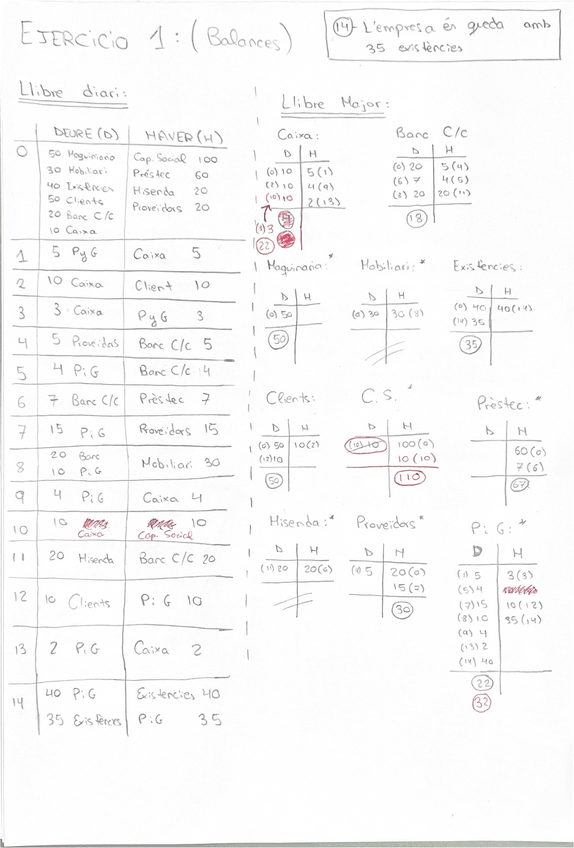 EJERCICIO 1: (Balances)
(14)- L'empresa én queda amb
35 existències
Llibre diari:
DEURE (D) HAVER (H)
0 50 Maquinaria Cap. Social 100
30 Mobiliari Préstec 60
40 Existències Hisenda 20
50 Clients Proveidors 20
20 Banc C/c
10 Caixa
1 5 PyG Caixa 5
2 10 Caixa Client 10
3 3 Caixa PyG 3
4 5 Proveidors Banc C/c 5
5 4 PiG Banc C/c 4
6 7 Banc C/c Prèstec 7
7 15 PiG Proveidors 15
8 20 Banc Mobiliari 30
10 PiG
9 4 PiG Caixa 4
10 10 Caixa Cap. Social 10
11 20 Hisenda Banc C/c 20
12 10 Clients PiG 10
13 2 PiG Caixa 2
14 40 PiG Existencies 40
35 Existències PiG 35
Llibre Major:
Caixa:
D H
(0) 10 5 (1)
(2) 10 4 (9)
(10) 10 2 (13)
(3) 3
22
Banc C/c
D H
(0) 20 5 (4)
(6) 7 4 (5)
(8) 20 20 (11)
18
Maquinaria: *
D H
(0) 50
50
Mobiliari: *
D H
(0) 30 30 (8)
Existències:
D H
(0) 40 40 (14)
(14) 35
35
Clients:
D H
(0) 50 10 (2)
(12) 10
50
C.S.
D H
(10) 10 100 (0)
10 (10)
110
Prèstec: *
D H
60 (0)
7 (6)
67
Hisenda: *
D H
(11) 20 20 (0)
Proveidors *
D H
(4) 5 20 (0)
15 (7)
30
PiG: *
D H
(1) 5 3 (3)
(5) 4
(7) 15 10 (12)
(8) 10 35 (14)
(9) 4
(13) 2
(14) 40
22
32